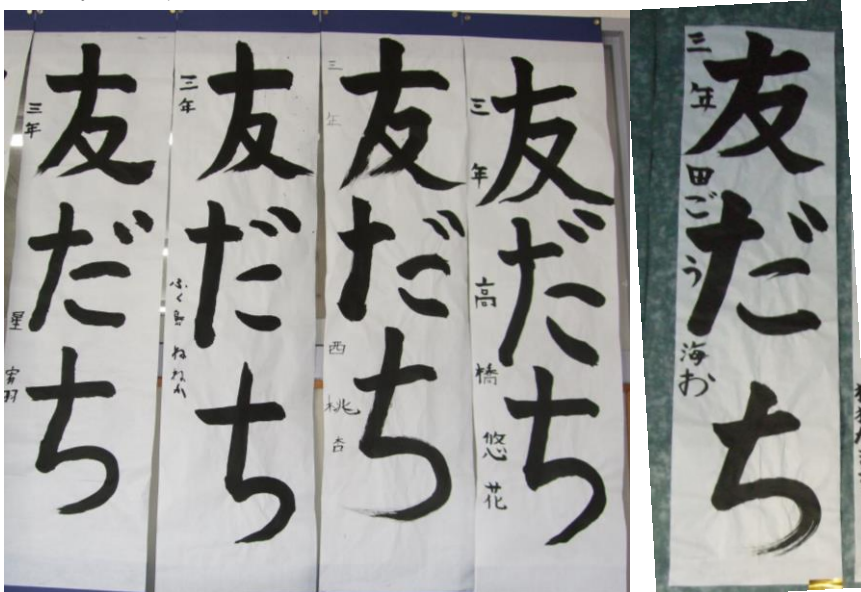 友だち
三年
星 宥羽
友だち
三年
ふく島 ねねか
友だち
三年
西 桃杏
友だち
三年
高橋 悠花
友だち
三年
田ごう 海お